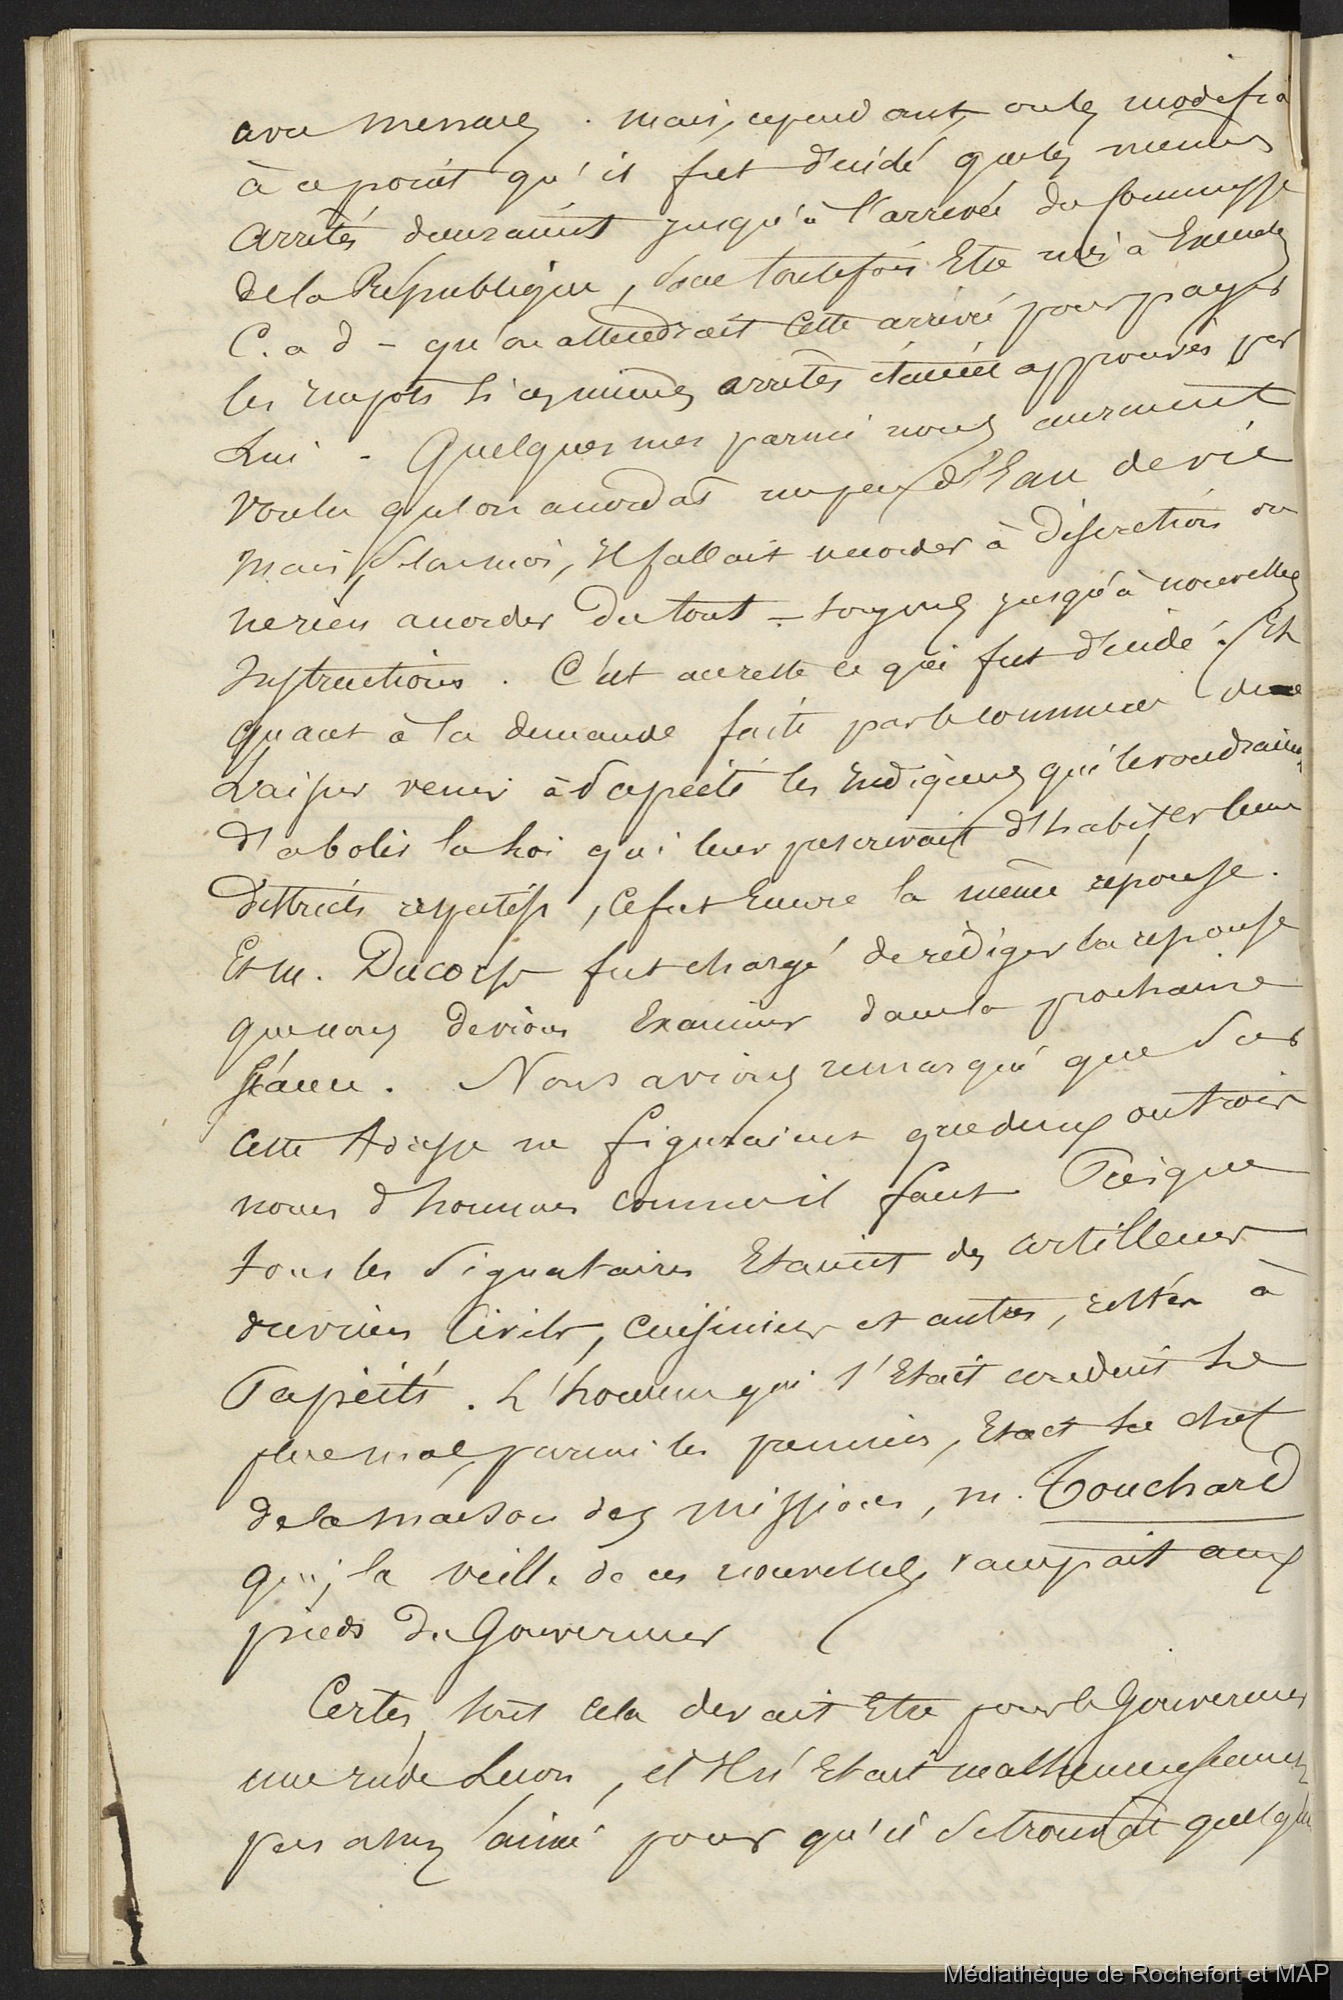 ava mesures. mais, cependant, on les modifia
à ce point qu'il fut décidé que les mêmes
arrêtés demeuraient jusqu'à l'arrivée du Commisse
de la République, sans toutefois Etre mis à Exécutés
C. a d - qu'on attendrait cette arrivée pour payer
les Impots si ces mêmes arrêtés étaient approuvés par
Lui - Quelques uns parmi nous auraient
voulu qu'on accordat un peu d'Eau de vie
mais, selon moi, Il fallait accorder à discretion ou
ne rien accorder du tout - jusqu'à nouvelles
Instructions. C'est au reste ce qui fut décidé. Et
quant à la demande faite par le commerce de
Laisser venir à Papeïté les Indigènes qui le voudraient
d'abolir la Loi qui leur prescrivait d'habiter leurs
districts respectifs, ce fut Encore la même réponse.
Et M. Ducorps fut chargé de rédiger la réponse
que nous devions Examiner dans la prochaine
séance. Nous avions remarqué que sur
cette Adresse ne figuraient que deux ou trois
noms d'hommes comme il faut Presque
tous les signataires Etaient des artilleurs
ouvriers civils, cuisiniers et autres, restés à
Papeïté. L'homme qui s'Etait conduit le
plus mal, parmi les premiers, Etait le chef
de la maison des missions, M. Touchard
qui, la veille de ces nouvelles, rampait aux
pieds du Gouverneur
Certes, tout cela devait Etre pour le Gouverneur
une rude Lecon, il était malheureusement
pas assez aimé pour qu'il se trouvat quelqu'un